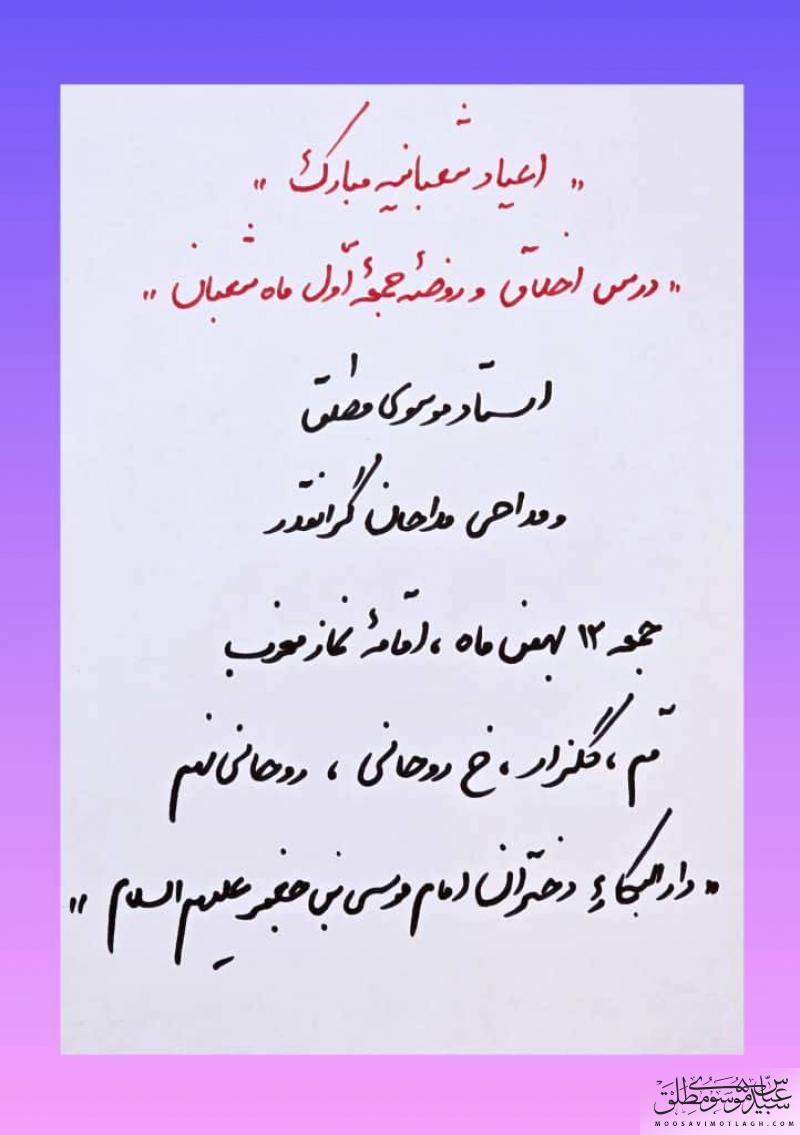 « اعیاد شعبانیه مبارک »
« درس اخلاق و روضهٔ جمعهٔ اوّل ماه شعبان »
استاد موسوی مطلق
و مداحی مداحان گرانقدر
جمعه ۱۲ بهمن ماه ، اقامهٔ نماز مغرب
قم ، گلزار ، خ روحانی ، روحانی نهم
« دارالبکاءِ دختران امام موسی بن جعفر علیهم السلام »
سید عباس موسوی مطلق
MOOSAVIMOTLAGH.COM